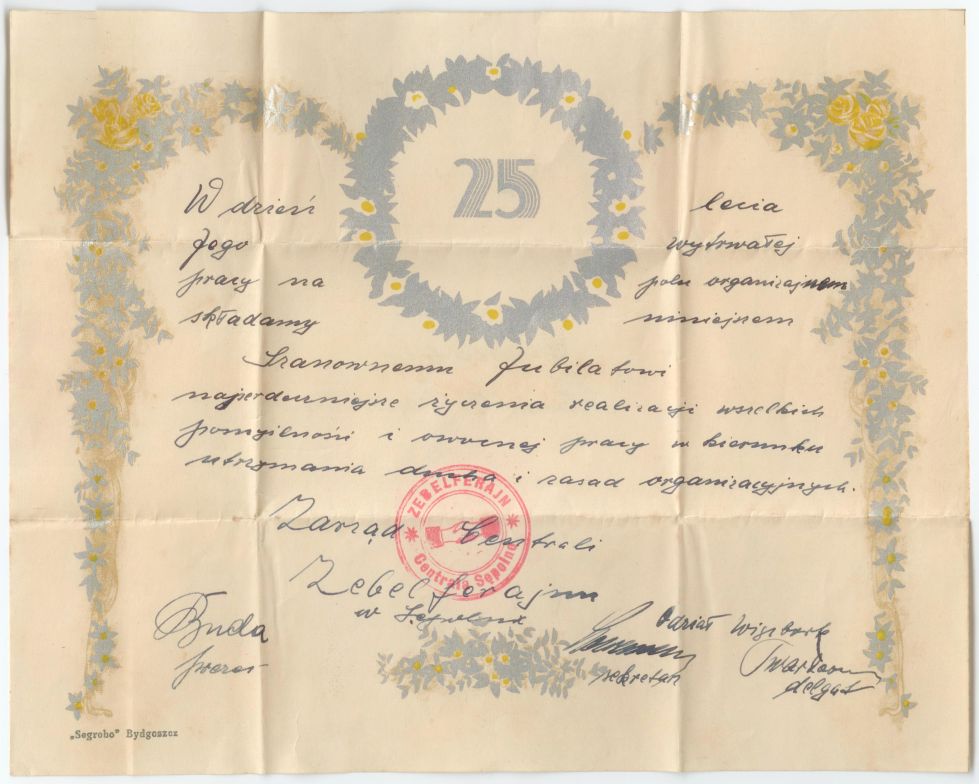 25
W dzień lecia
Jego wytrwałej
pracy na polu organizajnem
składamy niniejszem
Szanownemu Jubilatowi
najserdeczniejsze życzenia realizacji wszelkich
pomyślności i owocnej pracy w kierunku
utrzymania ducha i zasad organizacyjnych.
Zarząd Centrali
Zebelferajnu
w Sępolnie
ZEBELFERAJN
Centrala Sępolno
Buda
prezes
sekretarz
Wigbork
delgat
„Segrobo" Bydgoszcz